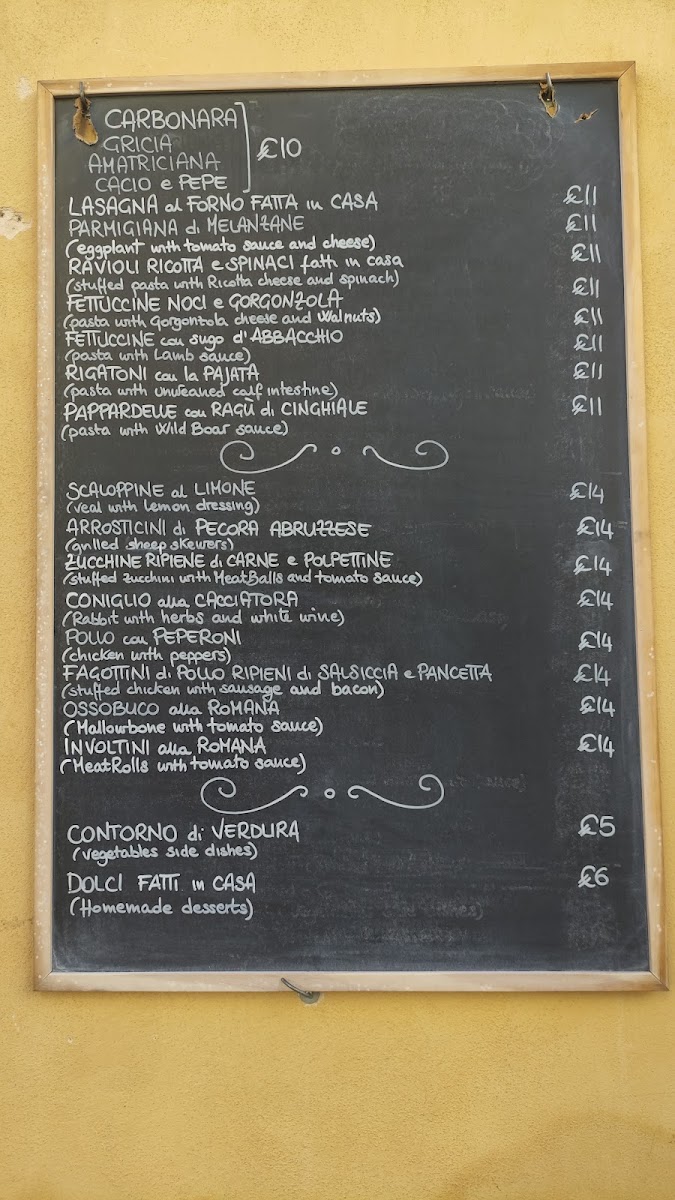 CARBONARA
GRICIA
AMATRICIANA
CACIO e PEPE
€10
LASAGNA al FORNO FATTA in CASA €11
PARMIGIANA di MELANZANE €11
(eggplant with tomato sauce and cheese)
RAVIOLI RICOTTA e SPINACI fatti in casa €11
(stuffed pasta with Ricotta cheese and spinach)
FETTUCCINE NOCI e GORGONZOLA €11
(pasta with Gorgonzola cheese and Walnuts)
FETTUCCINE con sugo d'ABBACCHIO €11
(pasta with Lamb sauce)
RIGATONI con la PAJATA €11
(pasta with unweaned calf intestine)
PAPPARDELLE con RAGÙ di CINGHIALE €11
(pasta with Wild Boar sauce)
SCALOPPINE al LIMONE €14
(veal with lemon dressing)
ARROSTICINI di PECORA ABRUZZESE €14
(grilled sheep skewers)
ZUCCHINE RIPIENE di CARNE e POLPETTINE €14
(stuffed zucchini with MeatBalls and tomato sauce)
CONIGLIO alla CACCIATORA €14
(Rabbit with herbs and white wine)
POLLO con PEPERONI €14
(chicken with peppers)
FAGOTTINI di POLLO RIPIENI di SALSICCIA e PANCETTA €14
(stuffed chicken with sausage and bacon)
OSSOBUCO alla ROMANA €14
(Mallowbone with tomato sauce)
INVOLTINI alla ROMANA €14
(MeatRolls with tomato sauce)
CONTORNO di VERDURA €5
(vegetables side dishes)
DOLCI FATTI in CASA €6
(Homemade desserts)